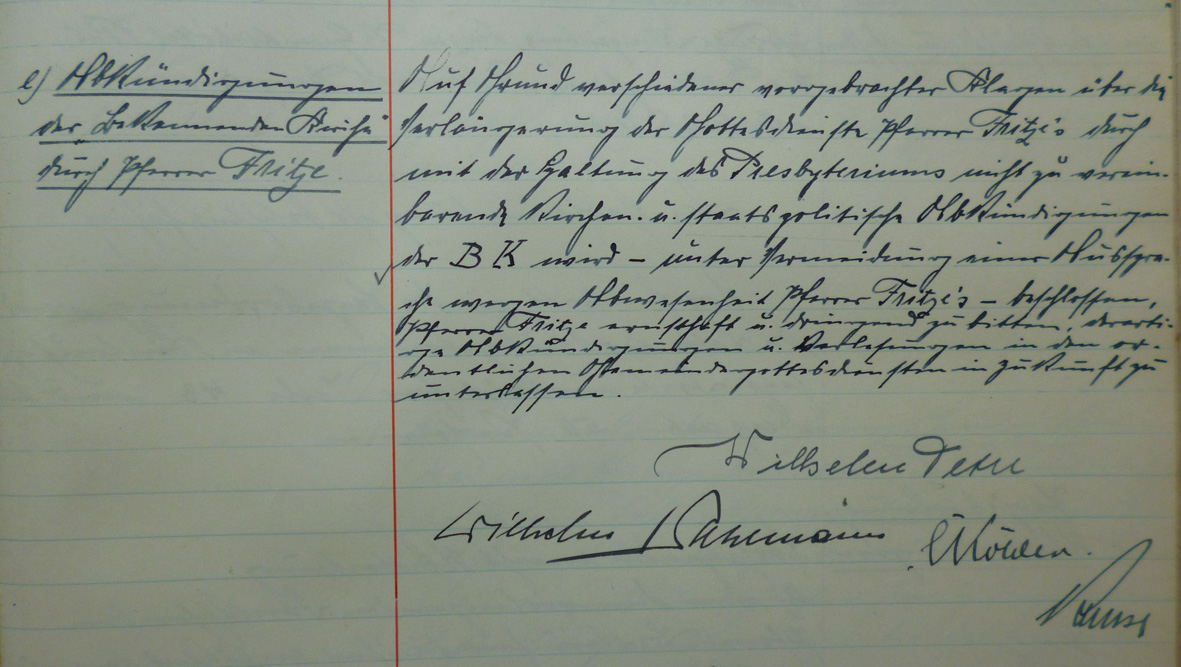 e) Abkündigungen
der „Bekennenden Kirche“
durch Pfarrer Fritze.
Auf Grund verschiedener vorgebrachter Klagen über die
Verlängerung der Gottesdienste Pfarrer Fritze's durch
mit der Haltung des Presbyteriums nicht zu verein-
barende kirchen- u. staatspolitische Abkündigungen
der BK wird – unter Vermeidung einer Ausspra-
che wegen Abwesenheit Pfarrer Fritze's – beschlossen,
Pfarrer Fritze ernsthaft u. dringend zu bitten, derarti-
ge Abkündigungen u. Verlesungen in den or-
dentlichen Gemeindegottesdiensten in Zukunft zu
unterlassen.
Wilhelm
Wilhelm